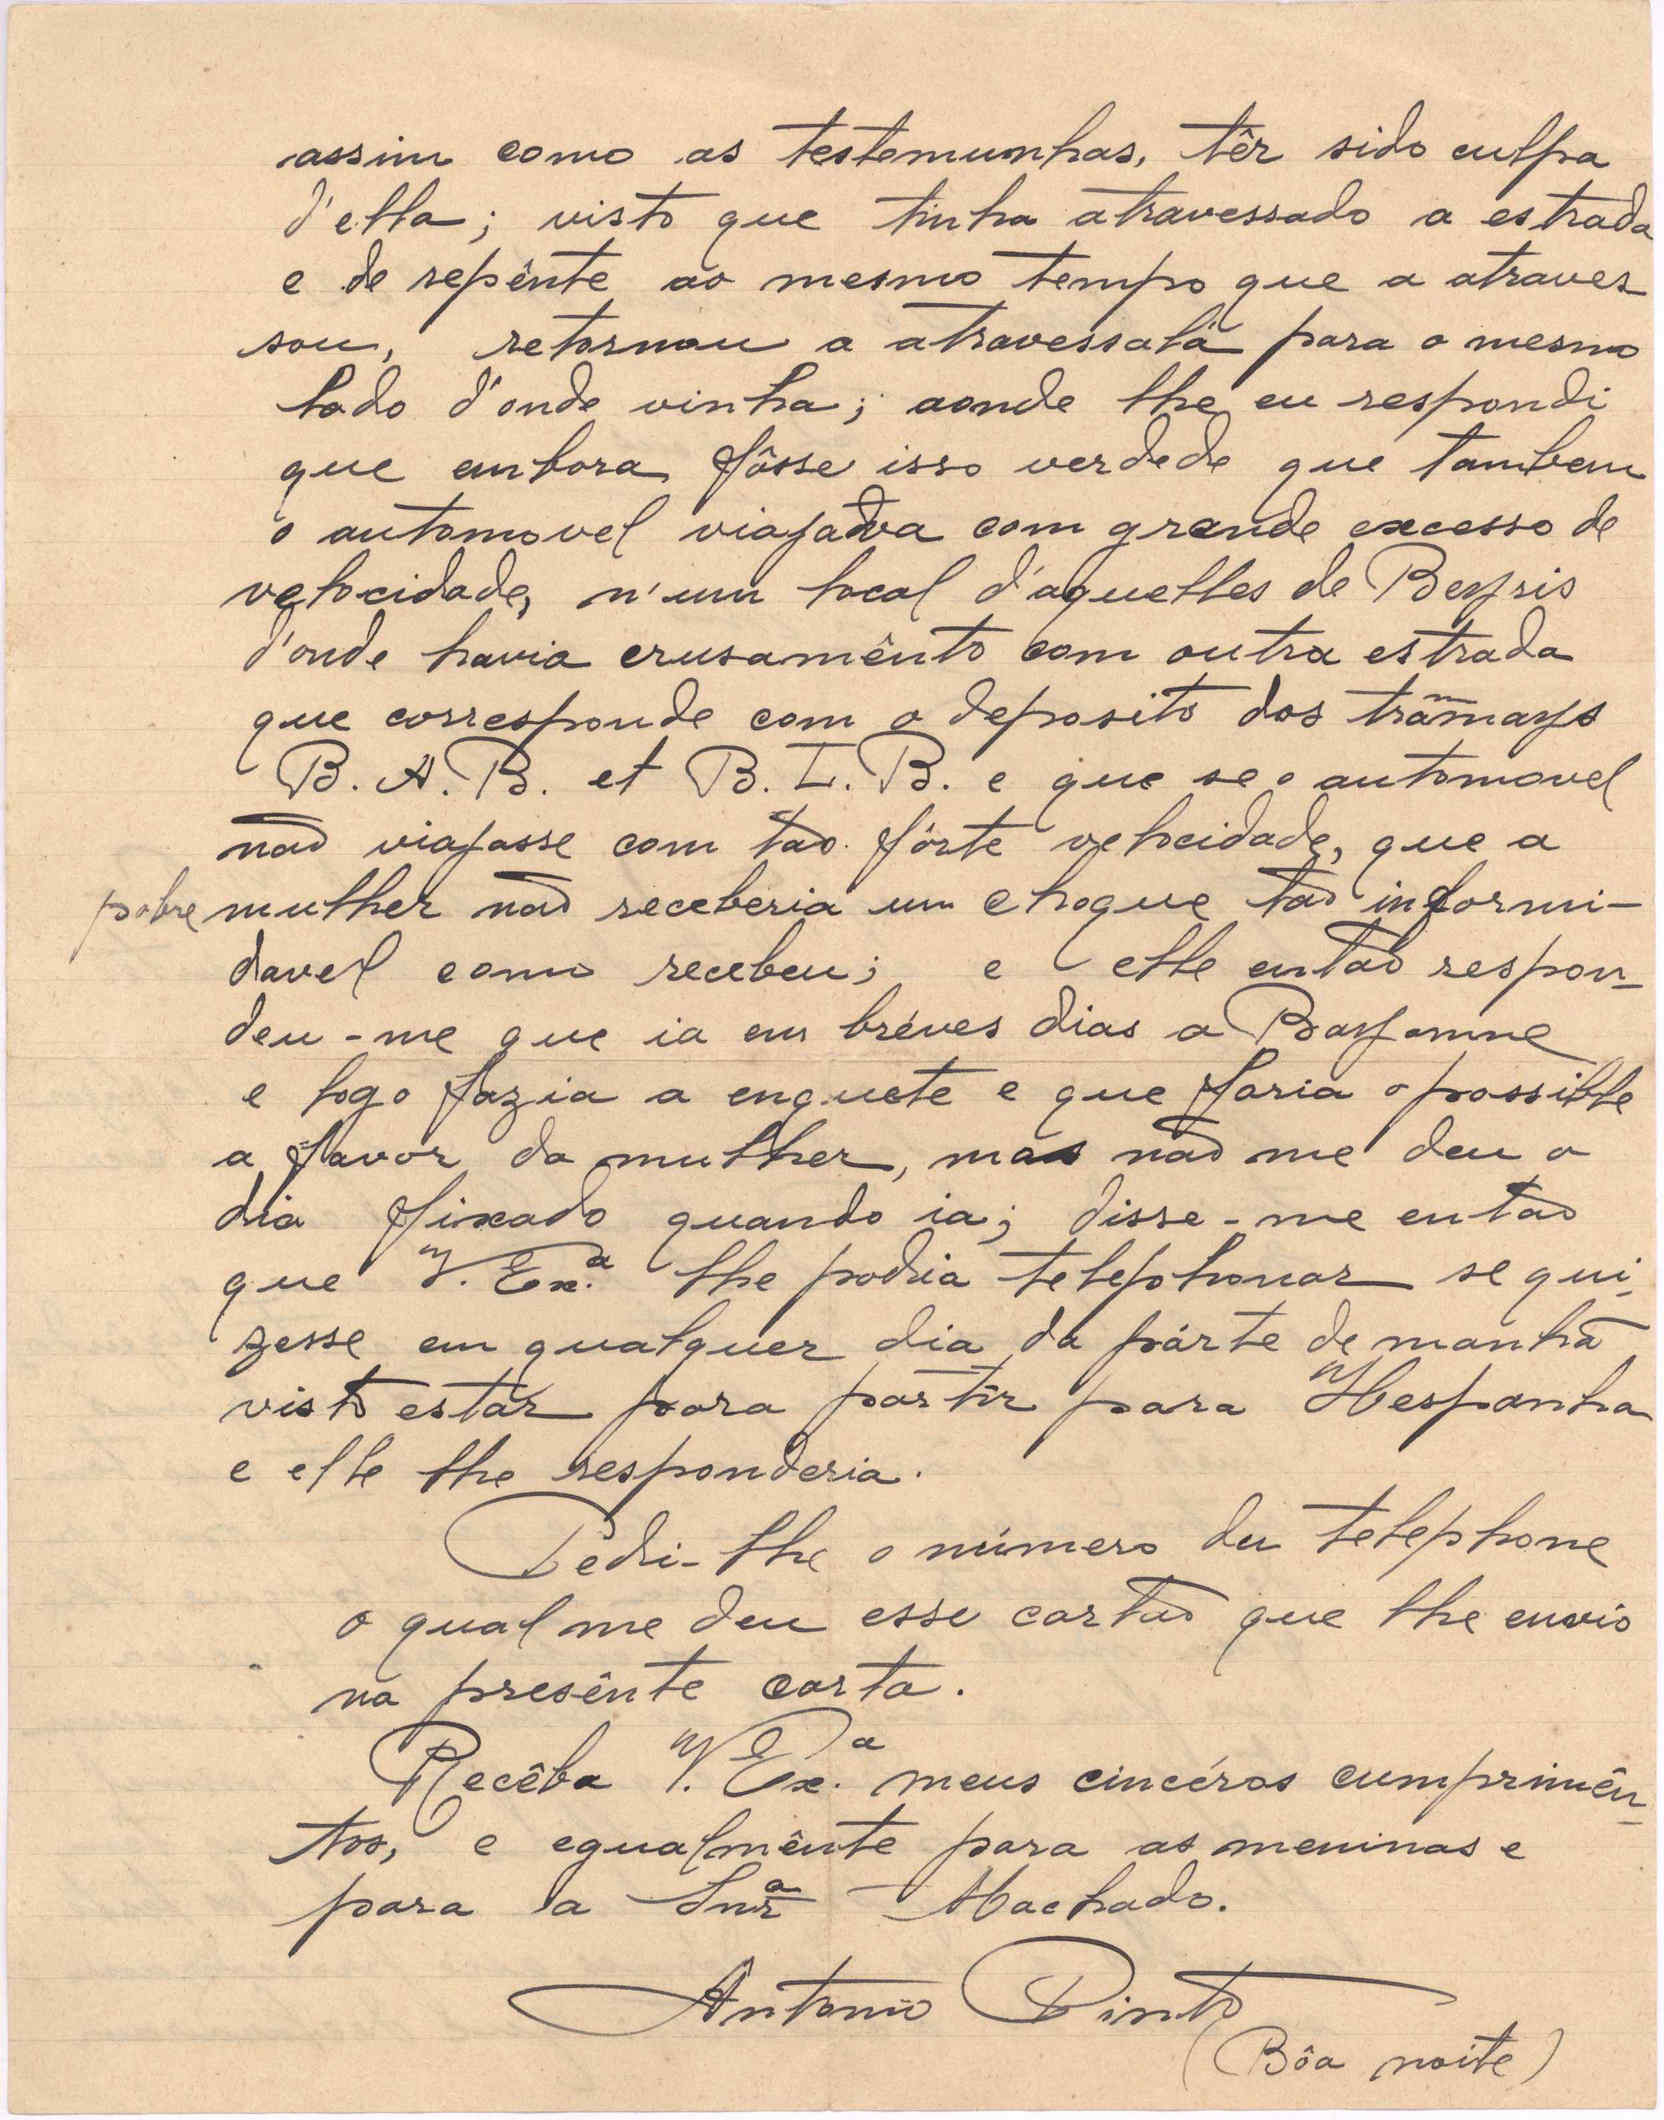 assim como as testemunhas, têr sido culpa
d'ella; visto que tinha atravessado a estrada
e de repênte ao mesmo tempo que a atraves-
sou, retornou a atravessala para o mesmo
lado d'onde vinha; aonde lhe eu respondi
que embora fôsse isso verdede que tambem
o automovel viajava com grande excesso de
velocidade, n'um local d'aquelles de Beyris
d'onde havia crusamênto com outra estrada
que corresponde com o deposito dos tramways
B. A. B. et B. L. B. e que se o automovel
não viajasse com tão fórte velocidade, que a
pobre mulher não receberia um choque tão informi-
davel como recebeu; e elle então respon-
deu-me que ia em bréves dias a Bayonne
e logo fazia a enquete e que faria o possible
a favor da mulher, mas não me deu o
dia fixado quando ia; disse-me então
que V. Ex.ª lhe podia telephonar se qui-
zesse em qualquer dia da párte de manhã
visto estár para partir para Hespanha
e elle lhe responderia.
Pedi-lhe o número du telephone
o qual me deu esse cartão que lhe envio
na presênte carta.
Recêba V. Ex.ª meus cincéros cumprimên-
tos, e egualmênte para as meninas e
para a Snrª Machado.
Antonio Pinto
(Bôa noite)